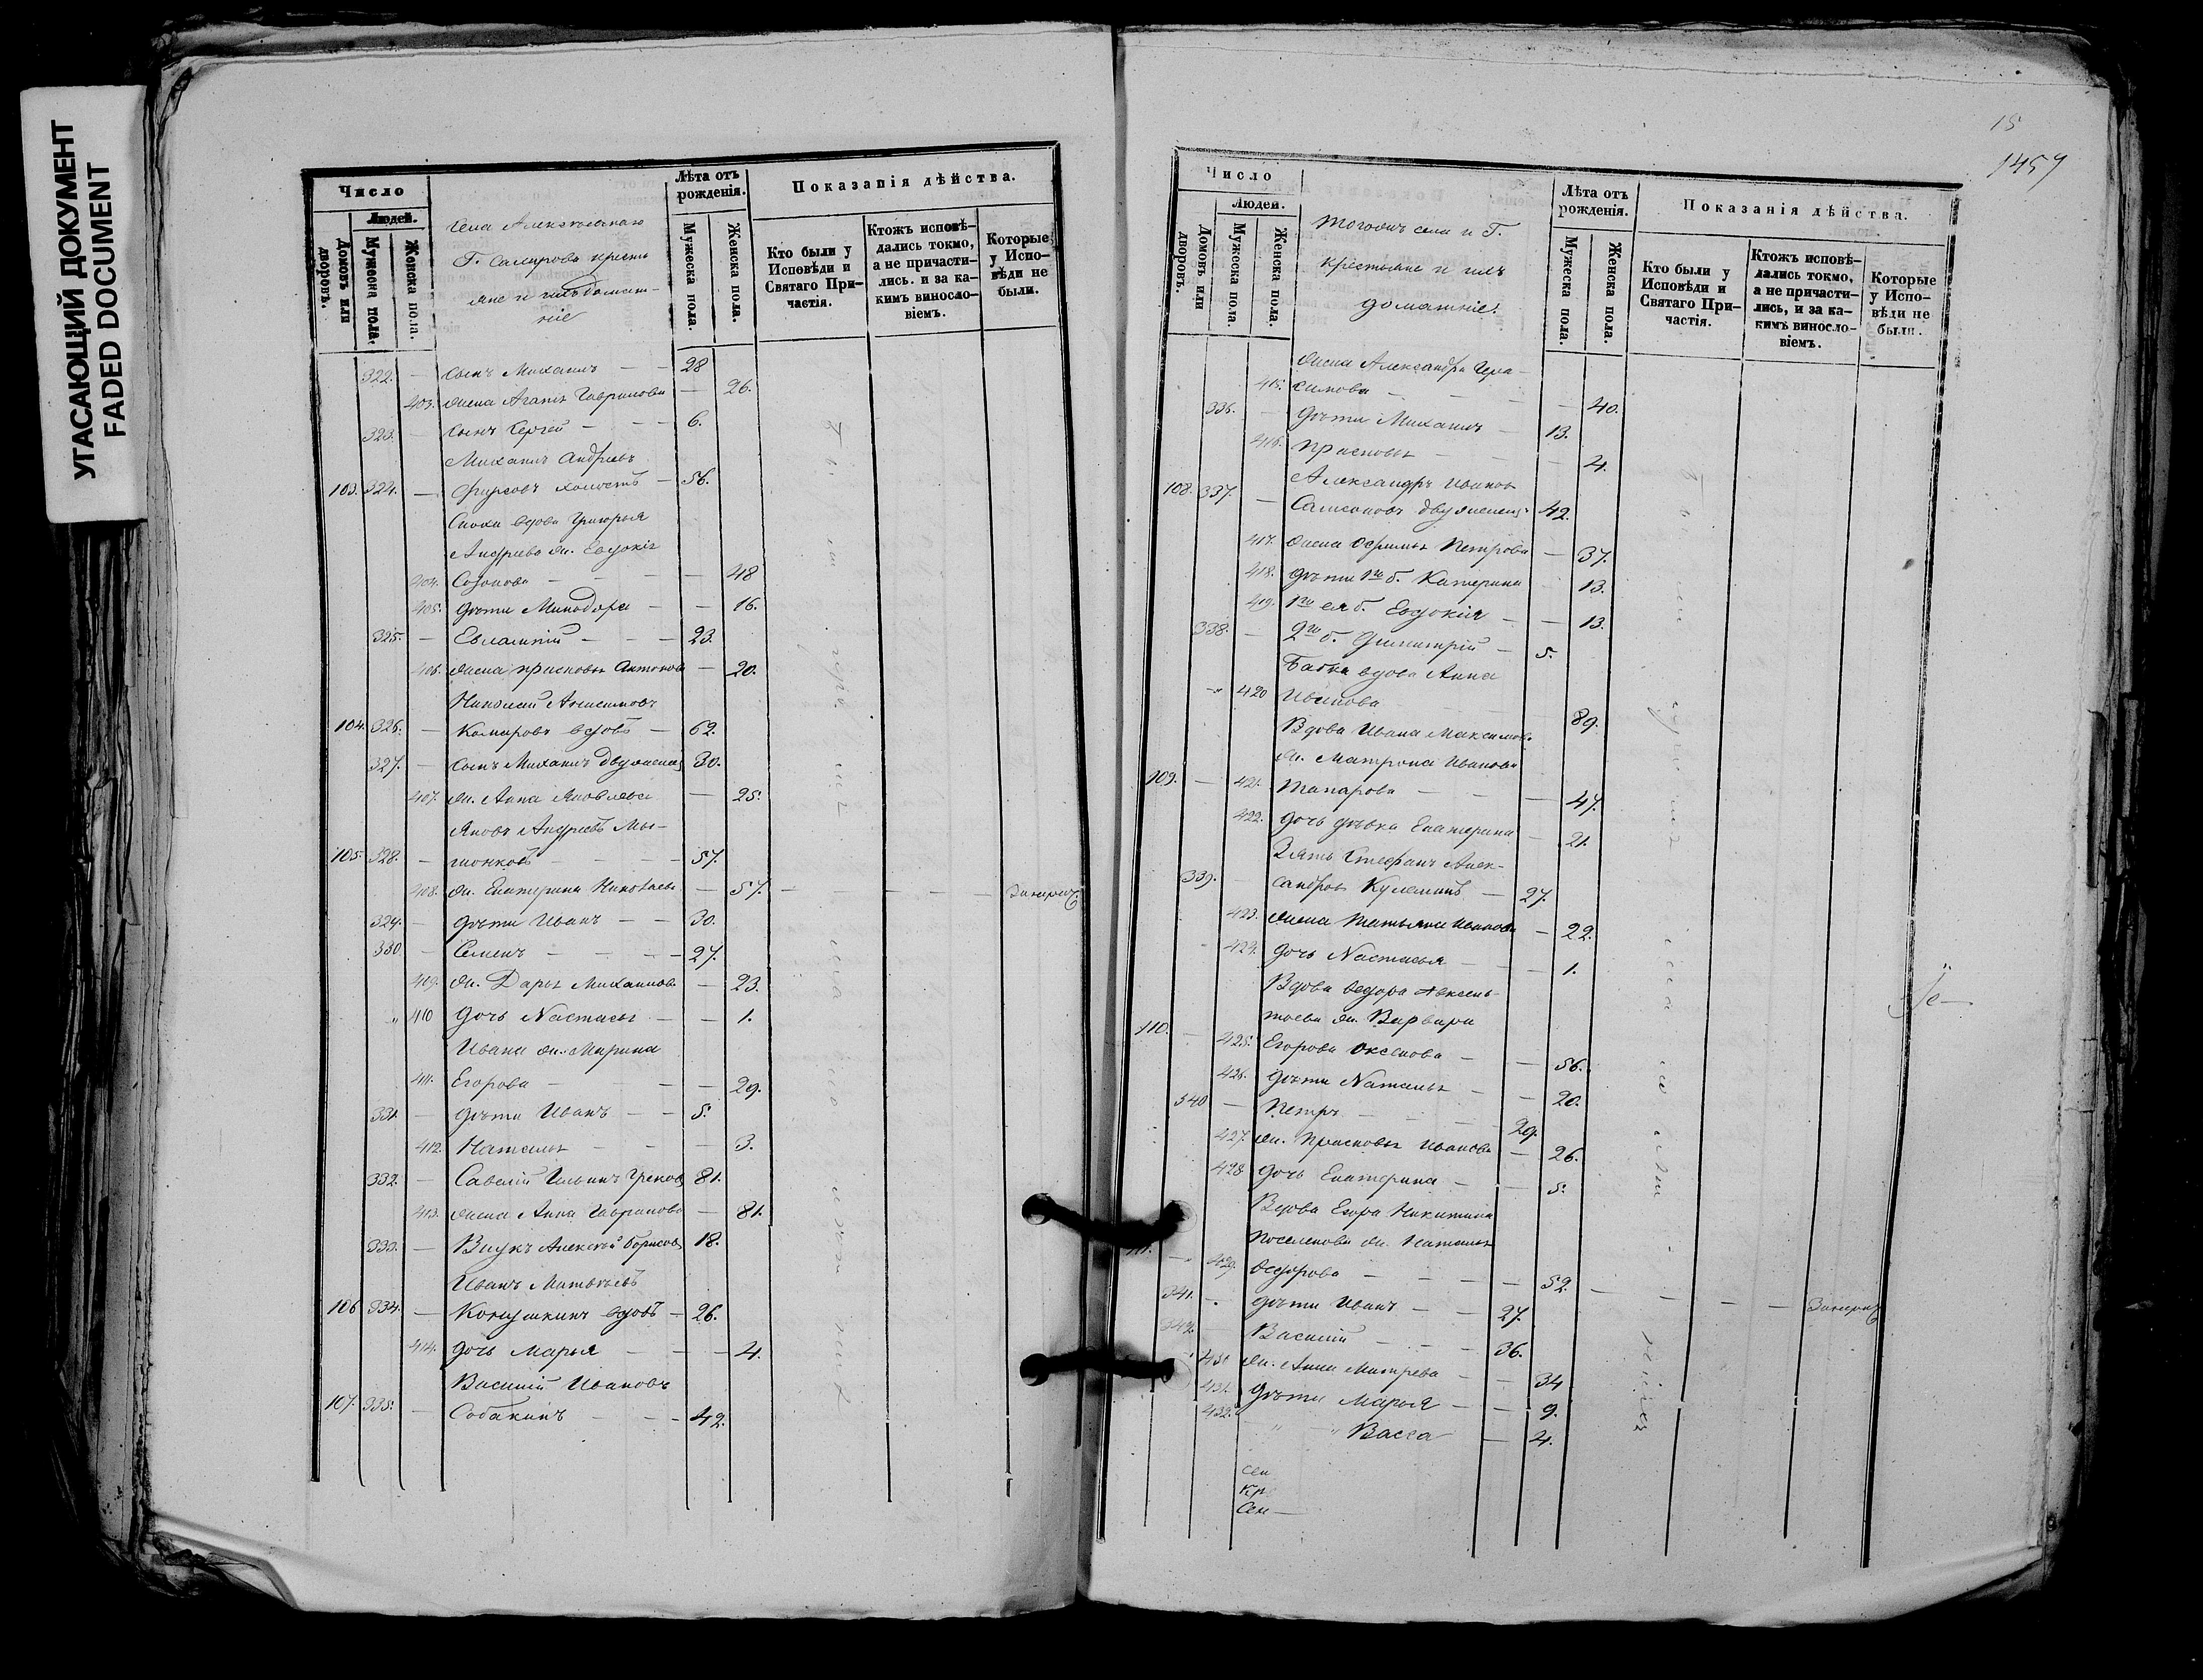 УГАСАЮЩИЙ ДОКУМЕНТ
FADED DOCUMENT
Число
Людей.
Домовъ или дворовъ.
Мужеска пола.
Женска пола.
Села
Г. крестьяне и ихъ домашніе
Лѣта отъ рожденія.
Мужеска пола.
Женска пола.
Показанія дѣйства.
Кто были у Исповѣди и Святаго Причастія.
Ктожъ исповѣдались токмо, а не причастились. и за какимъ винословіемъ.
Которые у Исповѣди не были.
322. — сынъ Михаилъ — — 28
403. жена Агапія Гаврилова — 26.
323. — сынъ Сергей — — — 6.
Михаилъ Андреевъ
103. 324. — Фирсовъ холостъ — 56.
Сноха вдова Григорья
Андреева ж. Евдокія
404. Созонова — — — — 48
405. дѣти Минодора — — 16.
325. — Евлампій — — — 23.
406. жена Прасковья Антонова — 20.
Николай Анисимовъ
104. 326. — Комаровъ вдовъ — 62.
327. — сынъ Михаилъ двуженец 30.
407. ж. Анна Яковлева — 25.
Яковъ Андреевъ
105. 328. — — — — 57.
408. ж. Екатерина Николаева — 57. — — — —
329. — дѣти Иванъ — — 30.
330 — Семенъ — — — 27.
409. ж. Дарья Михаилова — 23.
„ 410 дочь Настасья — — 1.
Ивана ж. Марина
411. Егорова — — — — 29.
331. — дѣти Иванъ — — 5.
412. Наталья — — — 3.
332. — Савелій Ильинъ Грековъ 81.
413. жена Анна Гаврилова — 81.
333. — Внукъ Алексѣй Борисовъ 18.
Иванъ Матвѣевъ
106 334. — вдовъ — 26.
414. дочь Марья — — — 4.
Василій Ивановъ
107. 335. — Собакинъ — — — 42.
15
1457
Число
Людей.
Домовъ или дворовъ.
Мужеска пола.
Женска пола.
Тогожъ села и Г.
крестьяне и ихъ
домашніе.
Лѣта отъ рожденія.
Мужеска пола.
Женска пола.
Показанія дѣйства.
Кто были у Исповѣди и Святаго Причастія.
Ктожъ исповѣдались токмо, а не причастились, и за какимъ винословіемъ.
Которые у Исповѣди не были.
жена Александра Гера-
415. симова — — — — 40.
336. — дѣти Михаилъ — 13.
416. Прасковья — — — 4.
Александръ Ивановъ
108. 337. — Самсоновъ двуженецъ 42.
417. жена Офимья Петрова — 37.
418. дѣти 1го б. Катерина — 13.
419. 1го ея б. Евдокія — — 13.
338. — 2го б. Димитрій — 5.
Бабка вдова Анна
„ 420 Иванова — 89.
Вдова Ивана Максимова
ж. Матрона Иванова
109. — 421. — — — 47.
422. дочь дѣвка Екатерина — 21.
Зять Стефанъ Алек-
339. — сандровъ — 27.
423. жена Татьяна Иванова — 22.
424. дочь Настасья — — — 1.
Вдова Федора
ж. Варвара
110. — 425. Егорова — — 56.
426. дѣти Наталья — — 20.
340 — Петръ — — — 29.
427. ж. Прасковья Иванова — 26.
428 дочь Екатерина — — 5.
Вдова Егора Никитина
ж. Наталья
111. — 429. Федорова — — — — 52. — — — —
341. — дѣти Иванъ — — 27.
342. — Василій — — — 36.
430 ж. Анна — — 34
431. дѣти Марья — — 9.
432. „ „ Васса — 4.